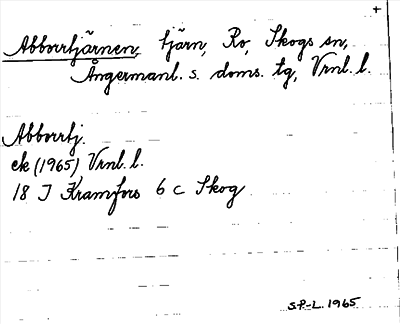 +
Abborrtjärnen, tjärn, Ro, Skogs sn,
Ångermanl. s. doms. tg, Vrnl. l.
Abborrtj.
ek (1965), Vrnl. l.
18 J Kramfors 6 c Skog
S.P-L. 1965